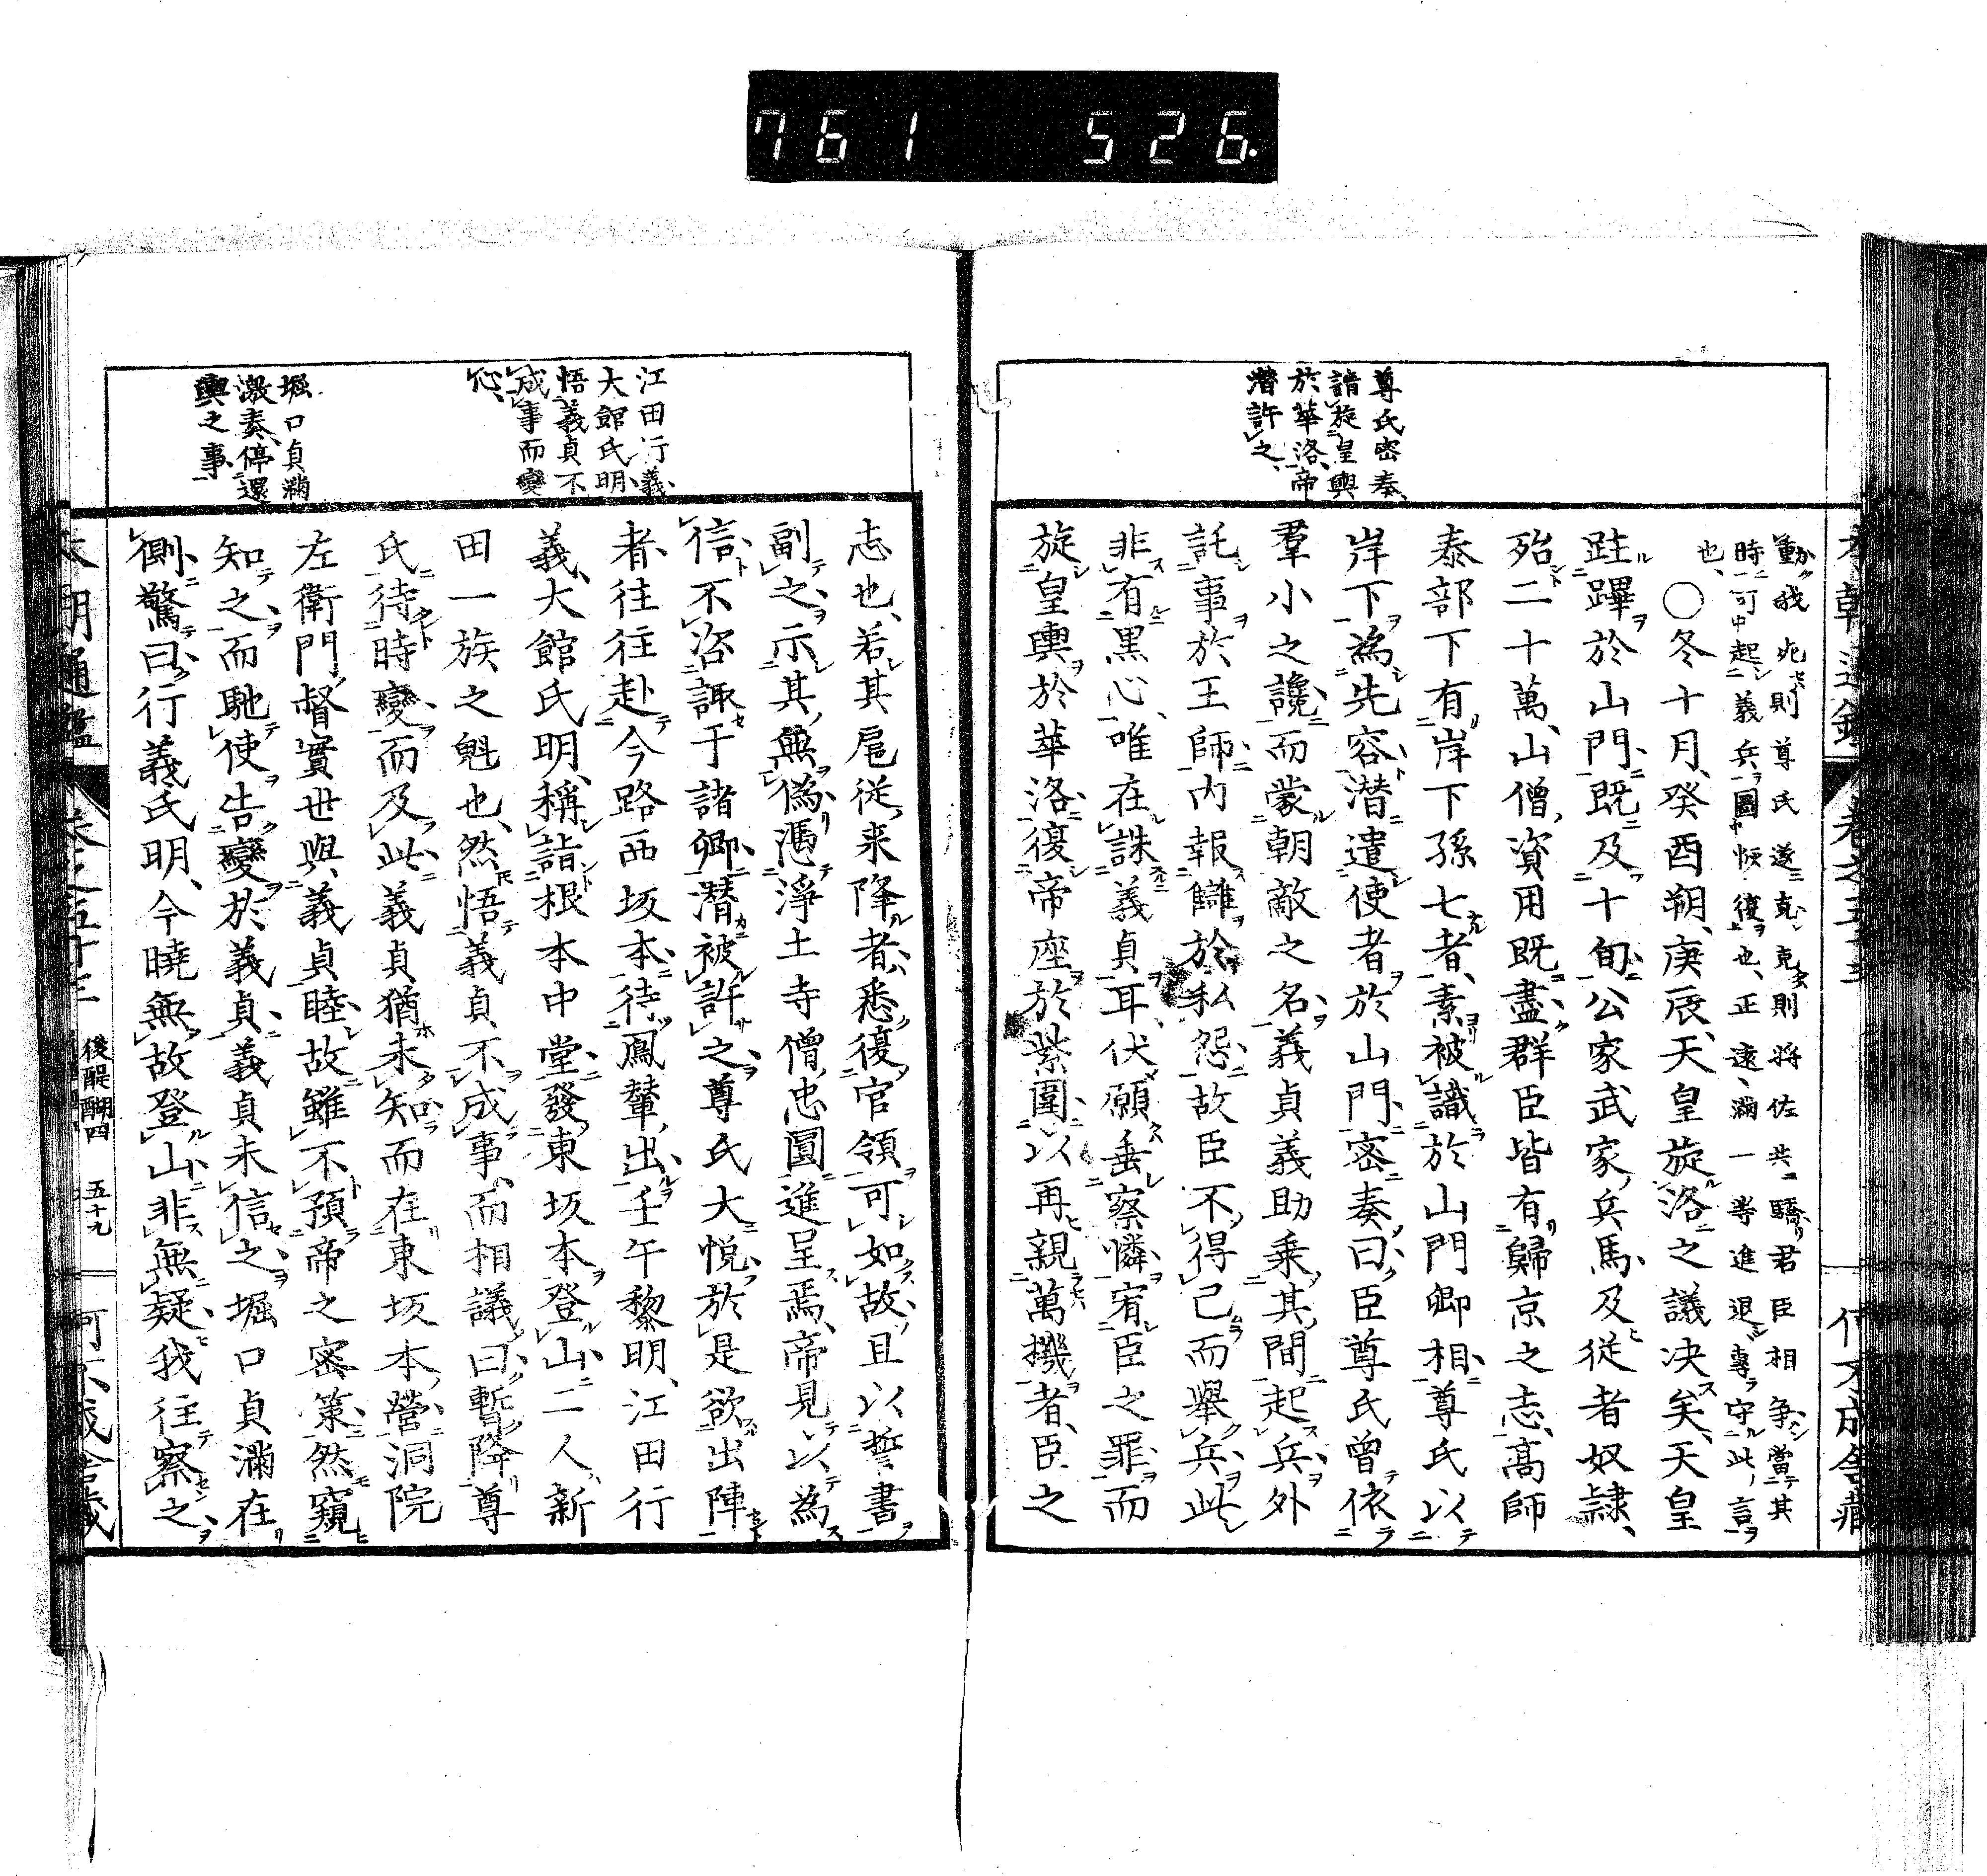 761 526.
尊氏密奏、
請旋皇輿
於華洛、帝
潜許之、
動我兆則尊氏遂克、克則將佐共驕君臣相争、當其
時可起義兵圖恢復也、正遠、滿一等進退專守此言
也、
○冬十月、癸酉朔、庚辰、天皇旋洛之議決矣、天皇
駐蹕於山門、既及十旬、公家武家、兵馬、及従者奴隷、
殆二十萬、山僧資用既盡、群臣皆有歸京之志、高師
泰部下有岸下孫七者、素被識於山門卿相、尊氏以
岸下為先容、潜遣使者於山門、密奏曰、臣尊氏曽依
羣小之讒、而蒙朝敵之名、義貞義助乗其間起兵、外
託事於王師、内報讎於私怨、故臣不得已而舉兵、此
非有黒心、唯在誅義貞耳、伏願垂察憐、宥臣之罪、而
旋皇輿於華洛、復帝座於紫圍、以再親萬機者、臣之
江田行義、
大館氏明、
悟義貞不
成事而變
心、
堀口貞滿
激奏、停還
輿之事
志也、若其扈従来降者、悉復官領、可如故、且以誓書
副之、示其無偽、憑淨土寺僧忠圓進呈焉、帝見以為
信、不咨諏于諸卿、潜被許之、尊氏大悦、於是欲出陣
者、往往赴今路西坂本、待鳳輦出、壬午黎明、江田行
義、大館氏明、稱詣根本中堂、發東坂本登山、二人、新
田一族之魁也、然悟義貞不成事、而相議曰、暫降尊
氏、待時變、而及此、義貞猶未知、而在東坂本營、洞院
左衛門督實世與義貞睦、故雖不預帝之密策、然窺
知之、而馳使告變於義貞、義貞未信之、堀口貞滿在
側、驚曰、行義氏明、今曉無故登山、非無疑、我往察之
後醍醐四 五十九